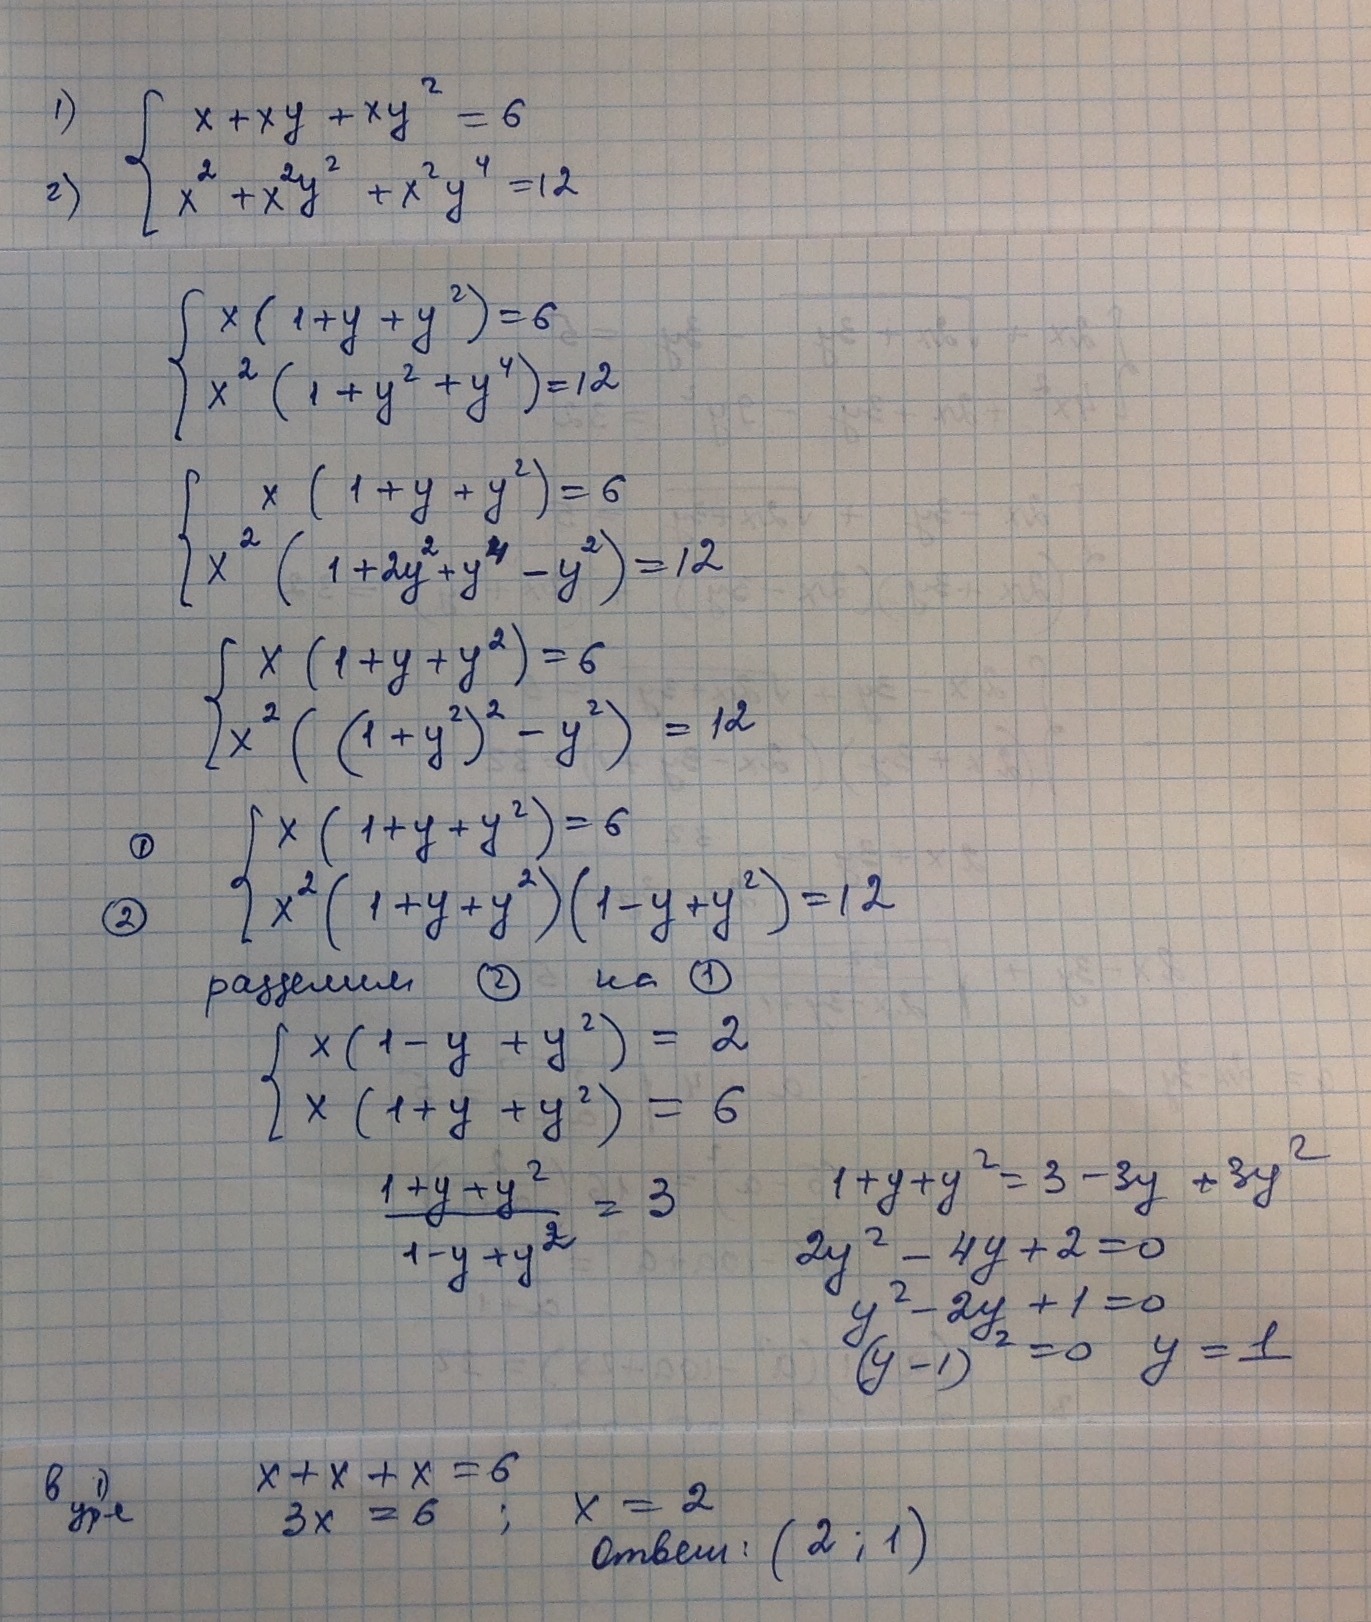 1) x + xy + xy² = 6
2) x² + x²y² + x²y⁴ = 12
x(1+y+y²)=6
x²(1+y²+y⁴)=12
x(1+y+y²)=6
x²(1+2y²+y⁴-y²)=12
x(1+y+y²)=6
x²((1+y²)²-y²)=12
① x(1+y+y²)=6
② x²(1+y+y²)(1-y+y²)=12
разделим ② на ①
x(1-y+y²) = 2
x(1+y+y²) = 6
(1+y+y²)/(1-y+y²) = 3
1+y+y²=3-3y+3y²
2y²-4y+2=0
y²-2y+1=0
(y-1)²=0 y=1
в 1) ур-е
x+x+x=6
3x=6 ; x=2
Ответ: (2;1)